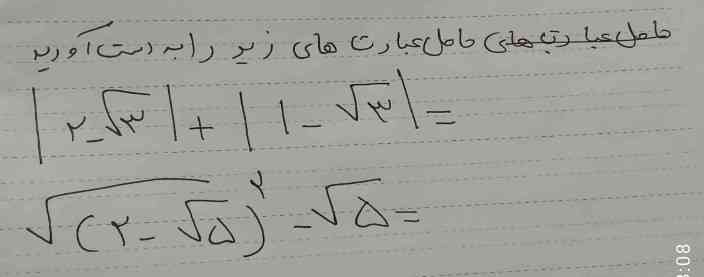 حاصل عبارت های حاصل عبارت های زیر را به دست آورید
|۲-√۳| + |۱-√۳| =
√(۲-√۵)^۲ - √۵ =
:08